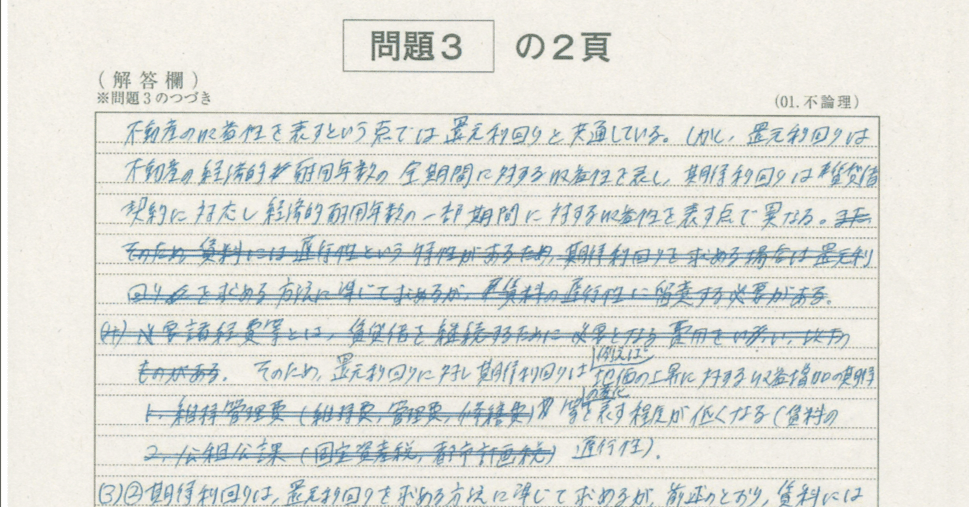 問題3 の2頁
(解答欄)
※問題3のつづき
(01.不論理)
不動産の収益性を表すという点では還元利回りと共通している。しかし、還元利回りは
不動産の経済的耐用年数の全期間に対する収益性を表し、期待利回りは賃貸借
契約に対応し経済的耐用年数の一部期間に対する収益性を表す点で異なる。また
そのため賃料には遅行性という特性があるため、期待利回りを求める場合は還元利
回りを求める方法に準じて求めるが、賃料の遅行性に留意する必要がある。
必要諸経費等とは、賃貸借を継続するために必要となる費用をいい、以下の
ものがある。そのため、還元利回りに対し期待利回りは例えば
地価の上昇に対する収益増加の期待
1. 維持管理費(維持費,管理費,修繕費) 等を表す程度が低くなる(賃料の
2. 公租公課(固定資産税,都市計画税) 遅行性)。
(3)②期待利回りは、還元利回りを求める方法に準じて求めるが、前述のとおり、賃料には